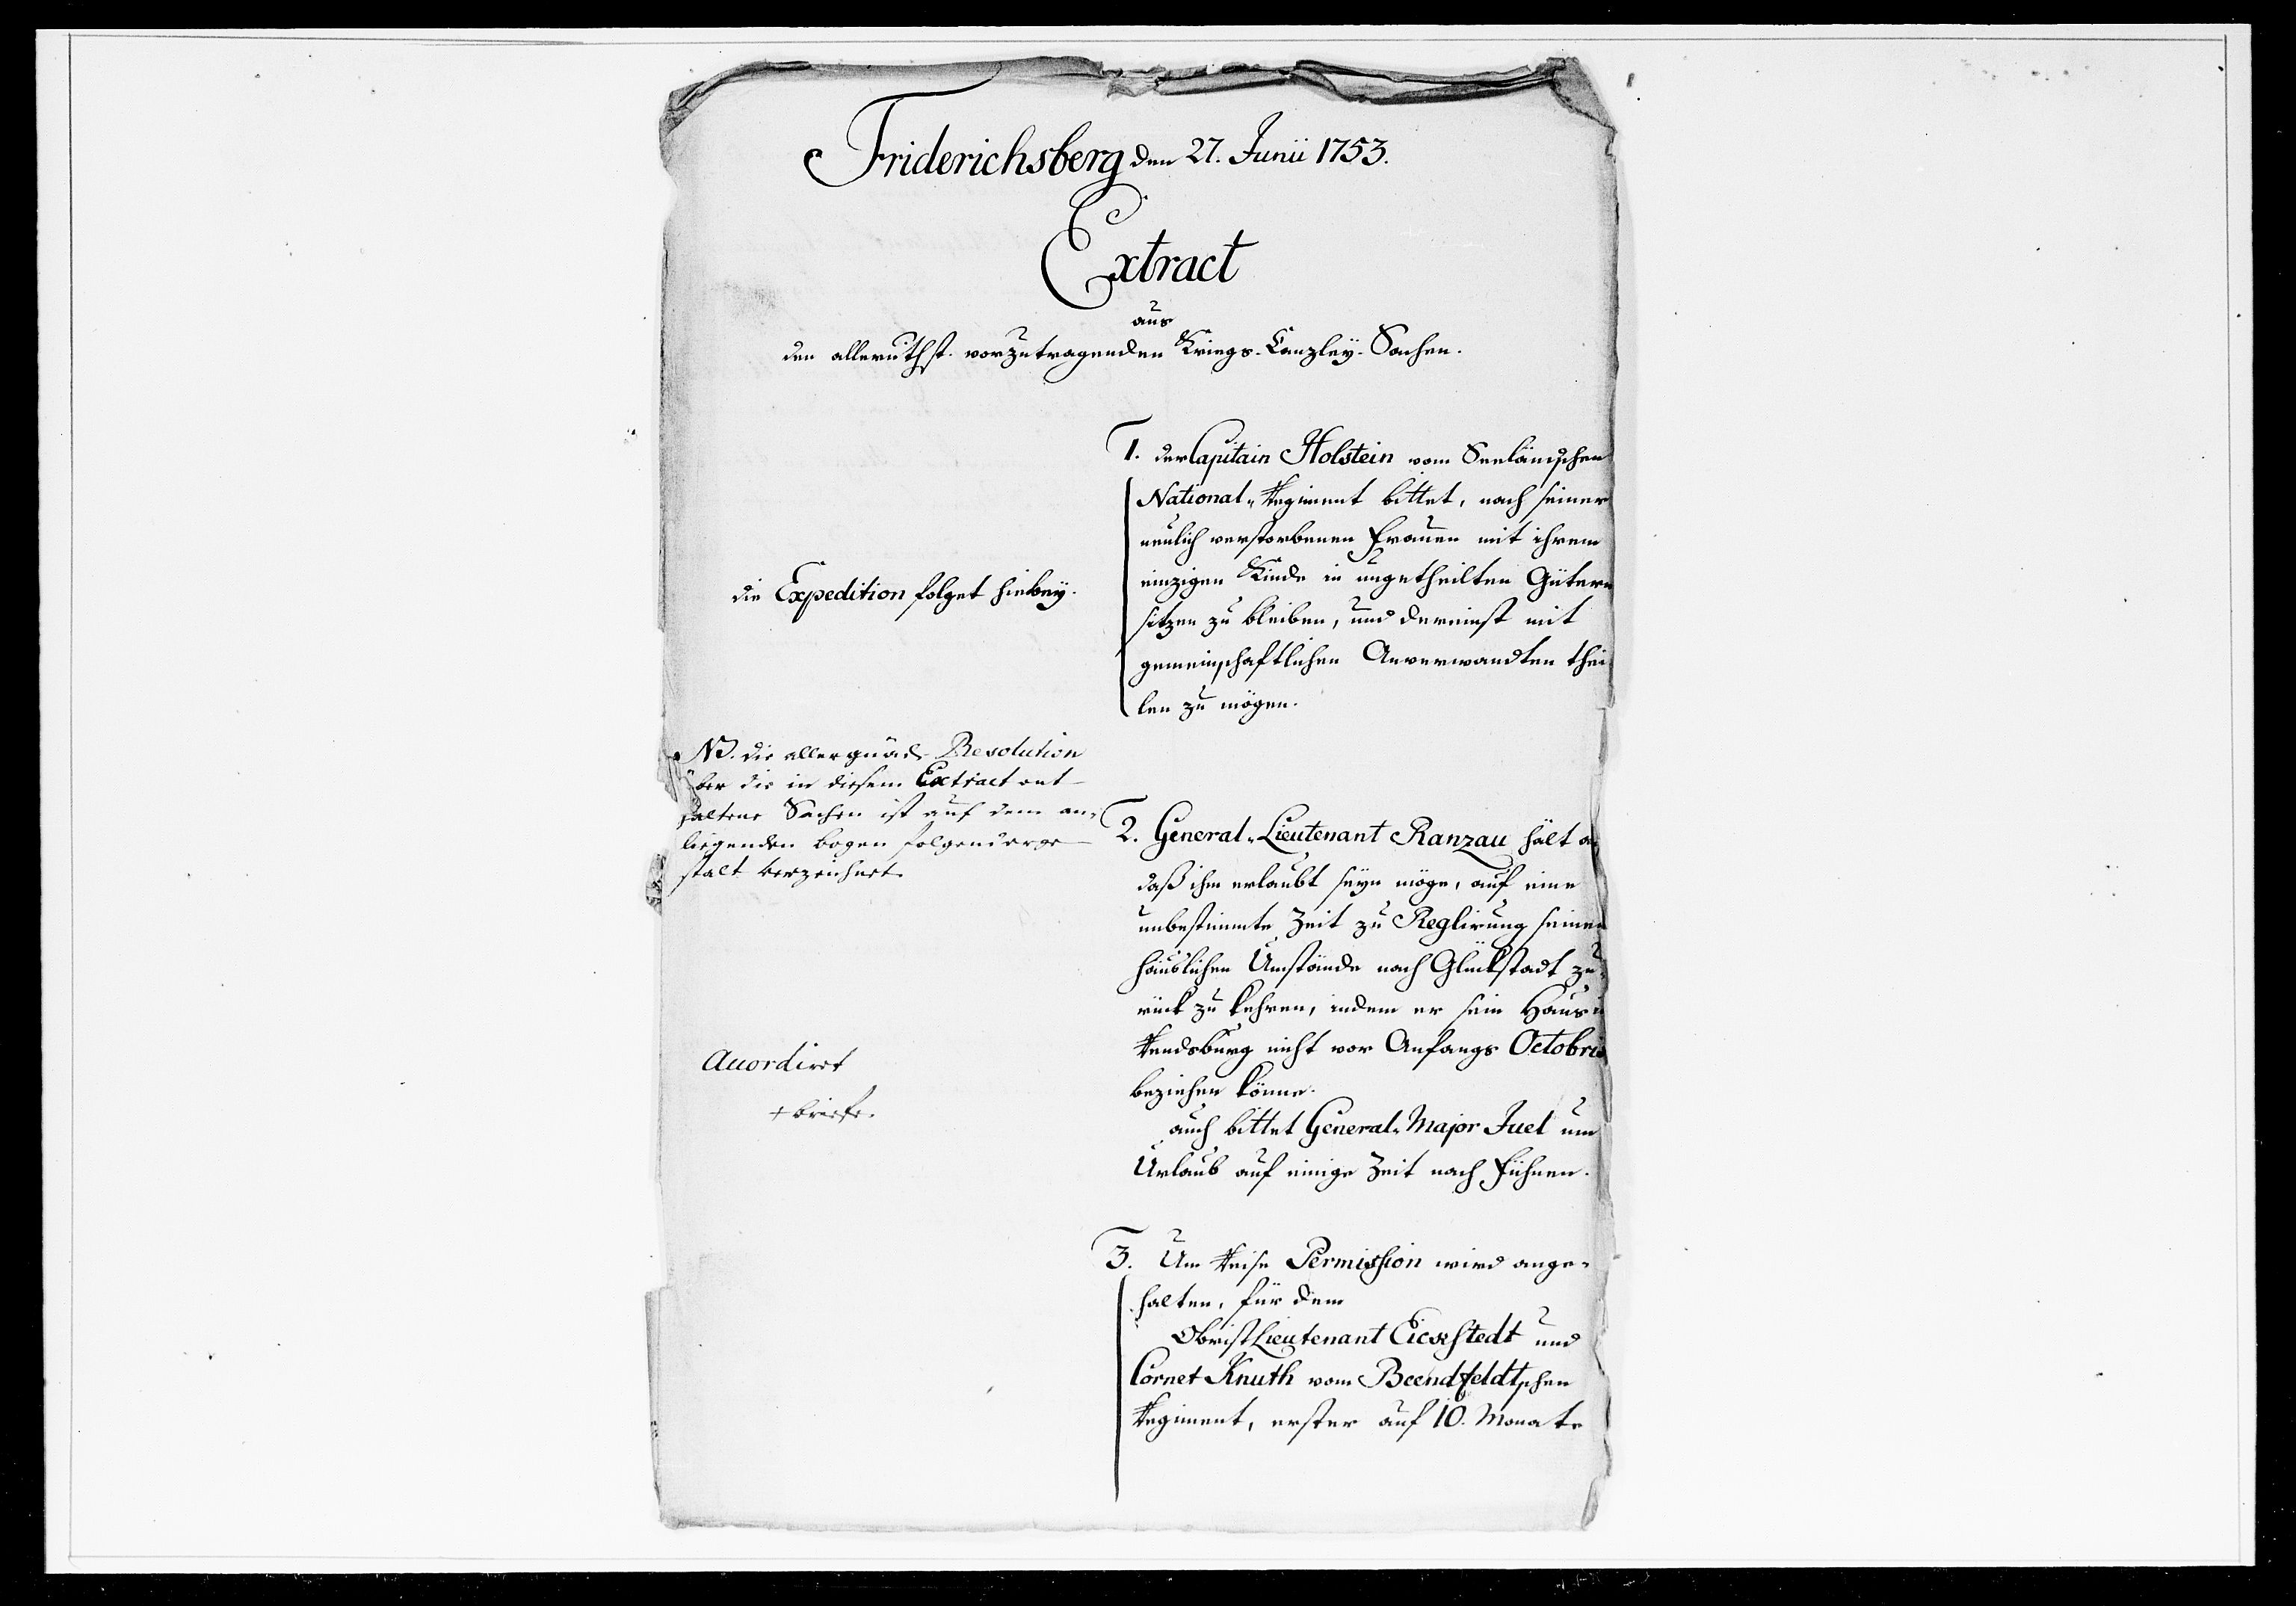 Friderichsberg den 27. Junii 1753.
Extract
aus
den allerunthst. vorzutragenden Kriegs-Canzley-Sachen.
1. der Capitain Holstein vom Seeländischen
National-Regiment bittet, nach seiner
neulich verstorbenen Frauen mit ihrem
einzigen Kinde in ungetheilten Gütern
sitzen zu bleiben, und dereinst mit
gemeinschaftlichen Anverwandten thei
len zu mögen.
die Expedition folget hiebey.
NB. die allergnäd. Resolution
über die in diesem Extract ent-
haltene Sachen ist auf dem an-
liegenden bogen folgenderge
stalt verzeichnet.
2. General-Lieutenant Ranzau hält an
daß ihm erlaubt seyn möge, auf eine
unbestimmte Zeit zu Reglirung seiner
häuslichen Umstände nach Glückstadt zu-
rück zu kehren, indem er sein Haus in
Rendsburg nicht vor Anfangs Octobris
beziehen könne.
auch bittet General-Major Juel um
Urlaub auf einige Zeit nach Fühnen.
Accordiret
+ briefe.
3. Um Reise Permission wird ange-
halten, für dem
Obrist Lieutenant Eickstedt und
Cornet Knuth vom Beenfeldtschen
Regiment, erster auf 10. Monate